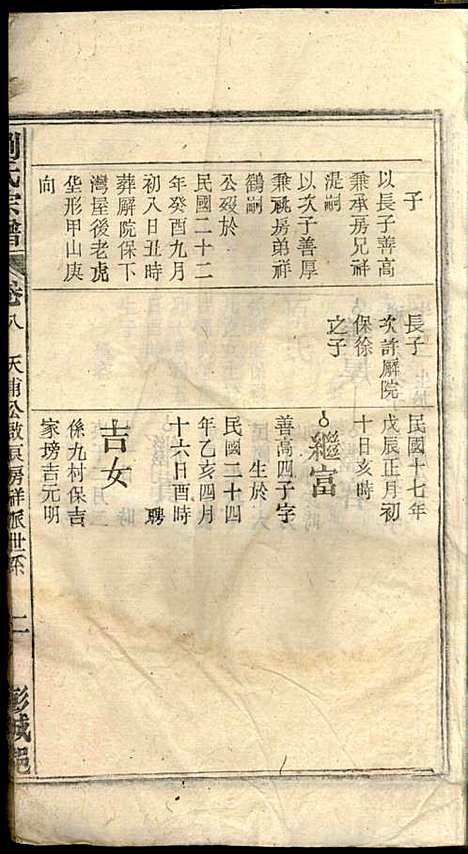 子
以長子善高
兼承房兄祥
湜嗣
以次子善厚
兼祧房弟祥
鶴嗣
公歿於
民國二十二
年癸酉九月
初八日丑時
葬廨院保下
灣屋後老虎
坐形甲山庚
向
長子
次許廨院
保徐
之子
民國十七年
戊辰正月初
十日亥時
繼富
善高四子字
生於
民國二十四
年乙亥四月
十六日酉時
聘
吉女
係九村保吉
家塝吉元明
劉氏宗譜
卷八
天蒲公啟房祥派世系
二
彭城邑